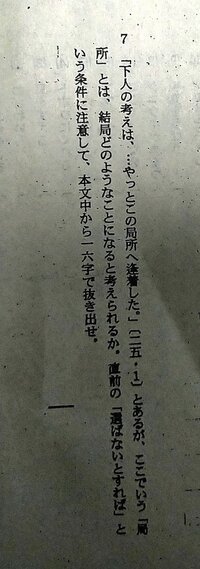 7 「下人の考えは、…やっとこの局所へ逢着した。」〔二五・1〕とあるが、ここでいう「局
所」とは、結局どのようなことになると考えられるか。直前の「選ばないとすれば」と
いう条件に注意して、本文中から一六字で抜き出せ。